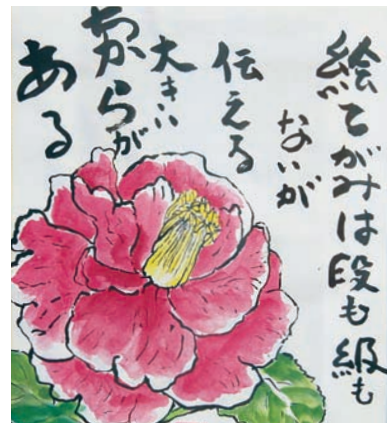 絵てがみは段も級も
ないが
伝える
大きい
ちからが
ある